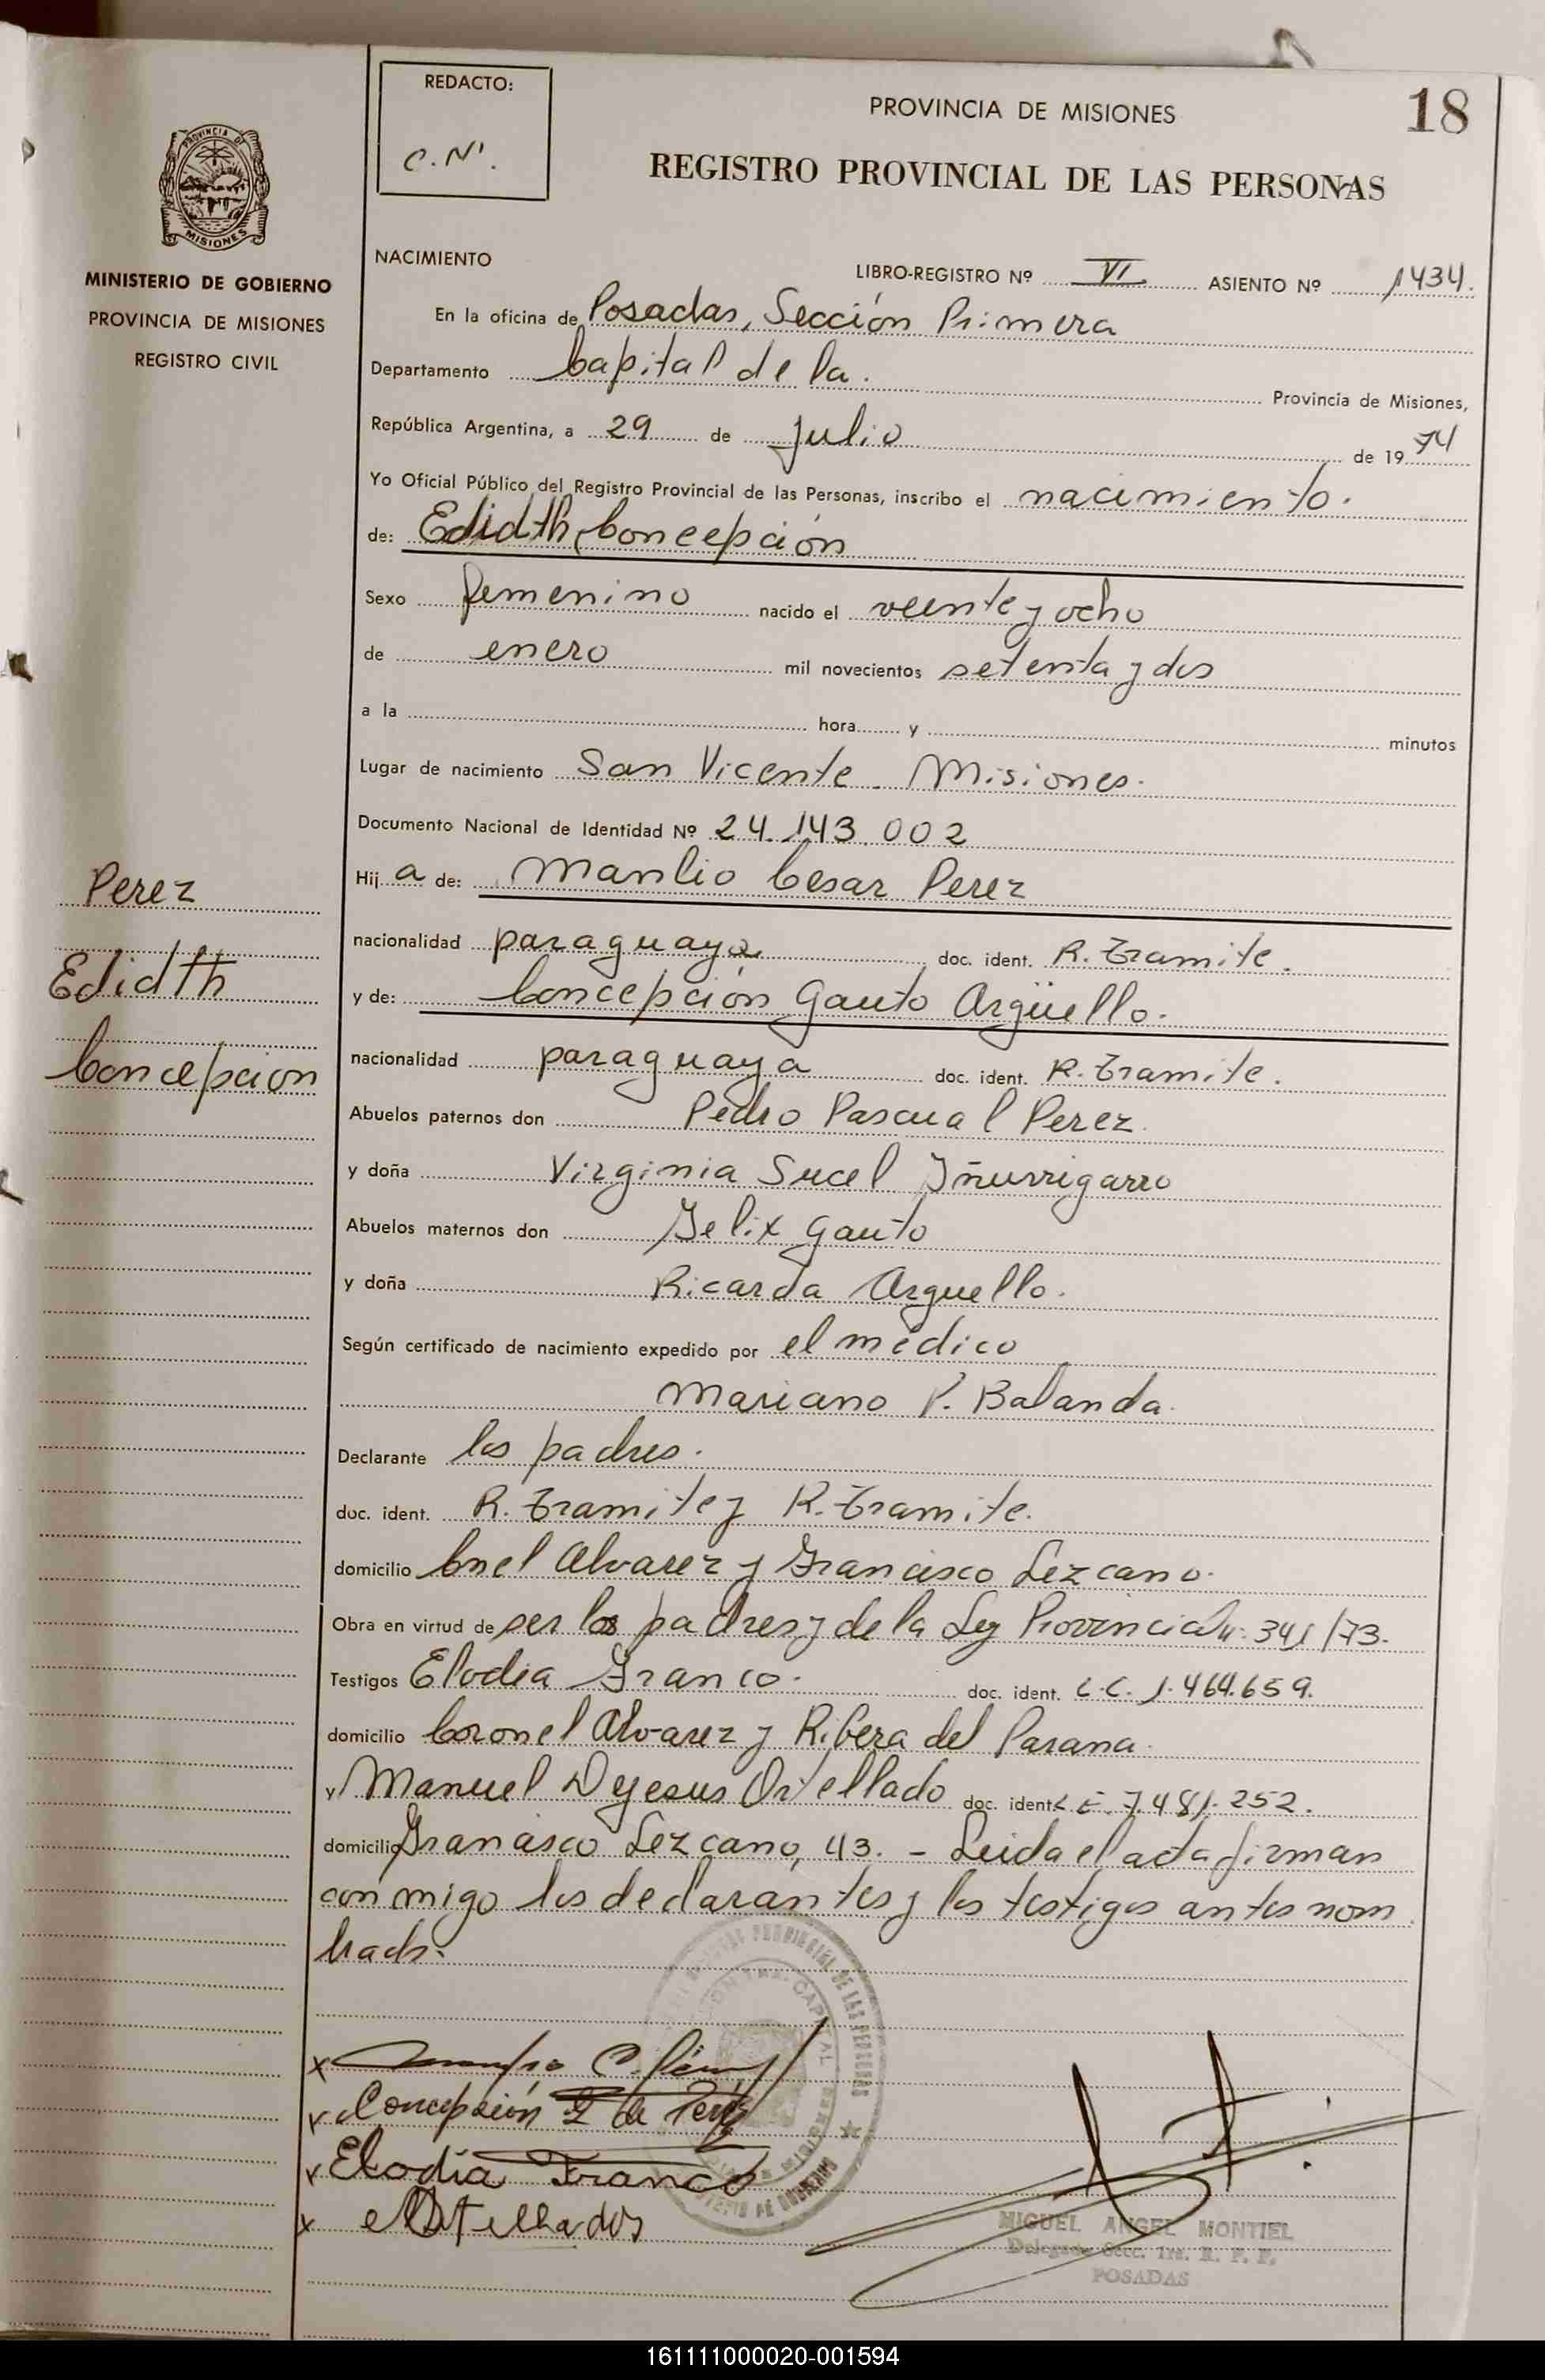 REDACTO:
C. N.
PROVINCIA DE MISIONES
18
REGISTRO PROVINCIAL DE LAS PERSONAS
PROVINCIA DE
MISIONES
MINISTERIO DE GOBIERNO
PROVINCIA DE MISIONES
REGISTRO CIVIL
NACIMIENTO
LIBRO-REGISTRO Nº VI ASIENTO Nº 1434.
En la oficina de Posadas, Sección Primera
Departamento Capital de la. Provincia de Misiones,
República Argentina, a 29 de Julio de 1974
Yo Oficial Público del Registro Provincial de las Personas, inscribo el nacimiento.
de: Edidth Concepción
Sexo femenino nacido el veinte y ocho
de enero mil novecientos setenta y dos
a la hora y minutos
Lugar de nacimiento San Vicente. Misiones.
Documento Nacional de Identidad Nº 24.143.002
Hija de: Manlio Cesar Perez
nacionalidad paraguaya doc. ident. R. Tramite.
y de: Concepción Gauto Argüello.
nacionalidad paraguaya doc. ident. R. Tramite.
Abuelos paternos don Pedro Pascual Perez.
y doña Virginia Sucel Iñurrigarro
Abuelos maternos don Felix Gauto
y doña Ricarda Arguello.
Según certificado de nacimiento expedido por el médico
Mariano P. Balanda.
Declarante los padres.
doc. ident. R. Tramite y R. Tramite.
domicilio Cnel Alvarez y Francisco Lezcano.
Obra en virtud de ser los padres y de la Ley Provincial n: 341/73.
Testigos Elodia Franco. doc. ident. L.C. 1.464.659.
domicilio Coronel Alvarez y Ribera del Parana.
y Manuel Dejesus Ortellado doc. ident. L E. 7.481.252.
domicilio Francisco Lezcano, 43. - Leida el acta firman
conmigo los declarantes y los testigos antes nom
brads.
Perez
Edidth
Concepcion
C. Pérez
Concepción G de Peréz
Elodia Franco
MIGUEL ANGEL MONTIEL
Delegado Secc. 1ra. R. P. P.
POSADAS
161111000020-001594